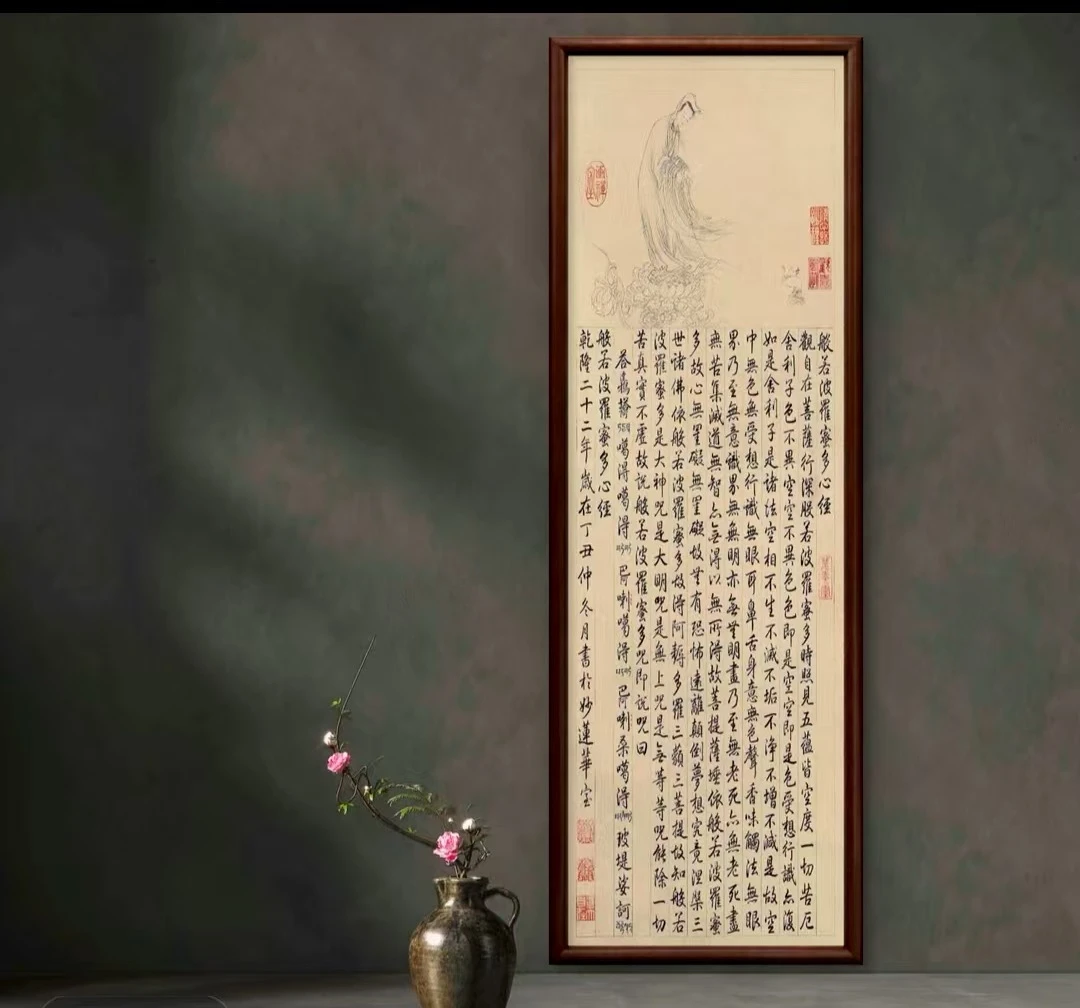 般若波羅蜜多心經
觀自在菩薩行深般若波羅蜜多時照見五蘊皆空度一切苦厄
舍利子色不異空空不異色色即是空空即是色受想行識亦復
如是舍利子是諸法空相不生不滅不垢不淨不增不減是故空
中無色無受想行識無眼耳鼻舌身意無色聲香味觸法無眼
界乃至無意識界無無明亦無無明盡乃至無老死亦無老死盡
無苦集滅道無智亦無得以無所得故菩提薩埵依般若波羅蜜
多故心無罣礙無罣礙故無有恐怖遠離顛倒夢想究竟涅槃三
世諸佛依般若波羅蜜多故得阿耨多羅三藐三菩提故知般若
波羅蜜多是大神呪是大明呪是無上呪是無等等呪能除一切
苦真實不虛故說般若波羅蜜多呪即說呪曰
噶得噶得巴喇噶得巴喇桑噶得玻堤娑訶
般若波羅蜜多心經
乾隆二十二年歲在丁丑仲冬月書於妙蓮華室